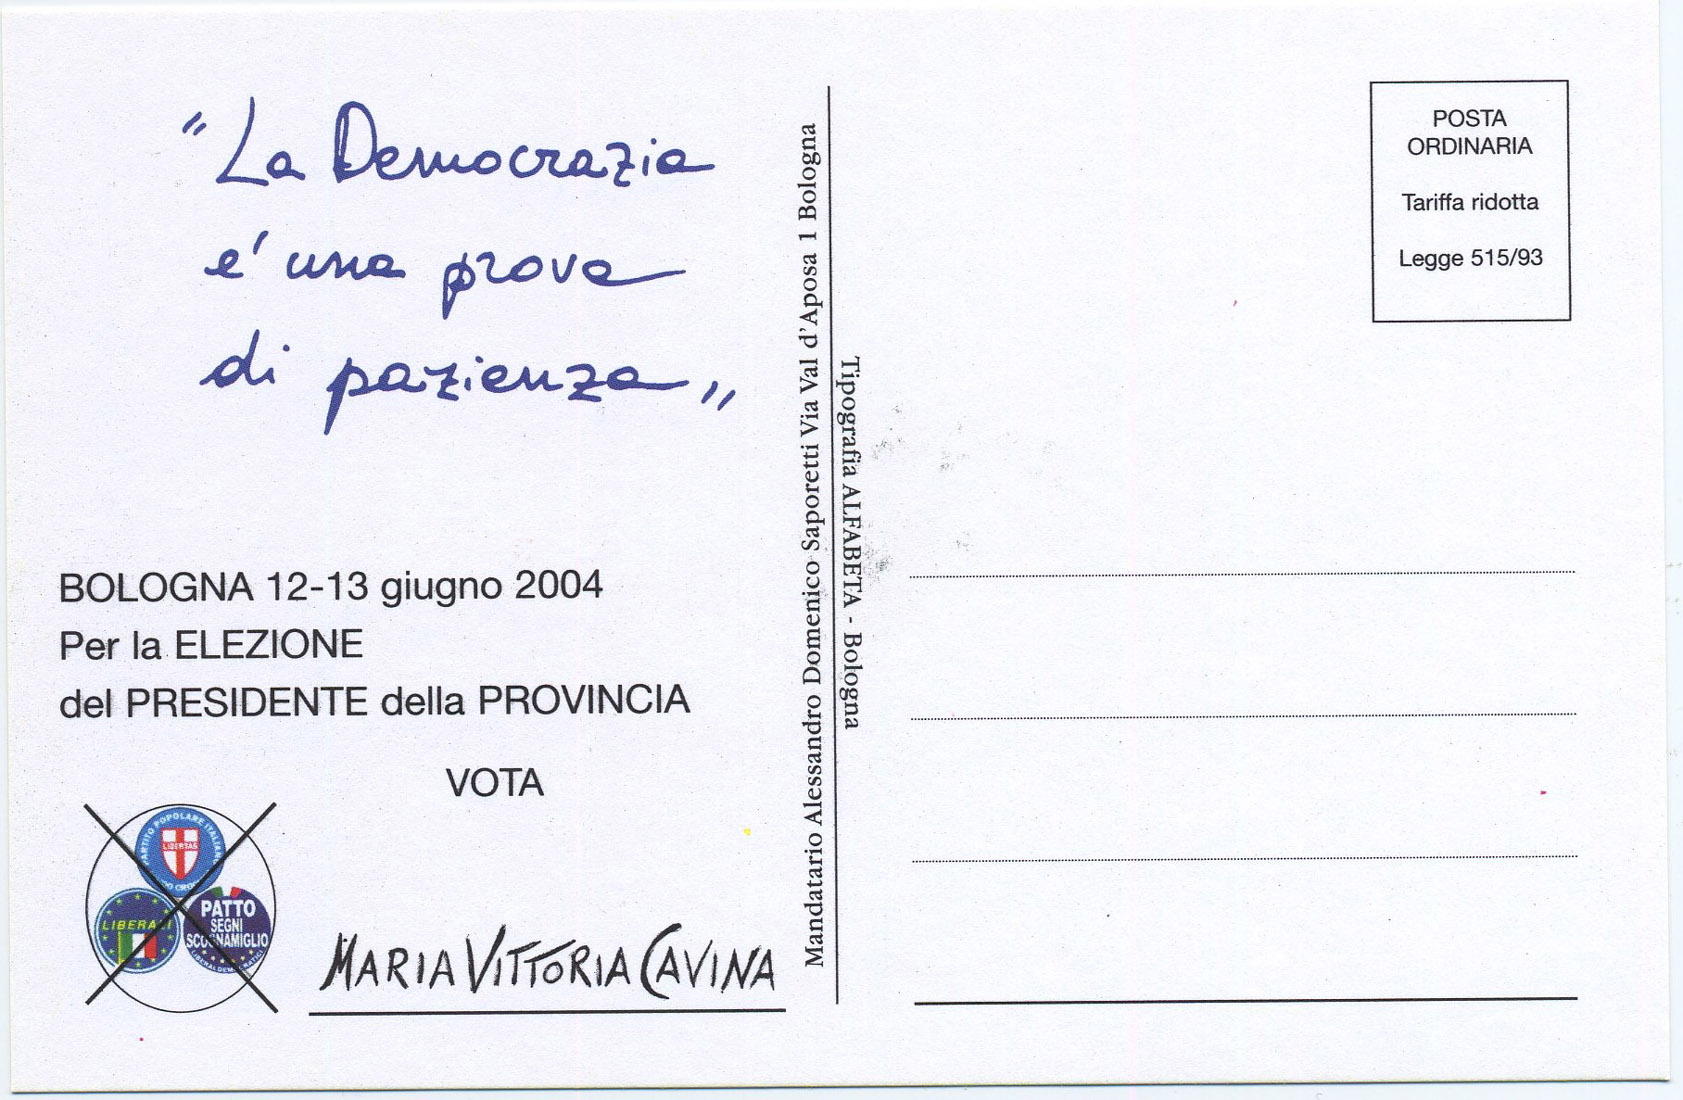 "La Democrazia
e' una prova
di pazienza„
BOLOGNA 12-13 giugno 2004
Per la ELEZIONE
del PRESIDENTE della PROVINCIA
VOTA
PARTITO POPOLARE ITALIANO
LIBERTAS
LIBERALI
PATTO
SEGNI
SCOGNAMIGLIO
LIBERALDEMOCRATICI
MARIA VITTORIA CAVINA
Mandatario Alessandro Domenico Saporetti Via Val d'Aposa 1 Bologna
Tipografia ALFABETA - Bologna
POSTA
ORDINARIA
Tariffa ridotta
Legge 515/93